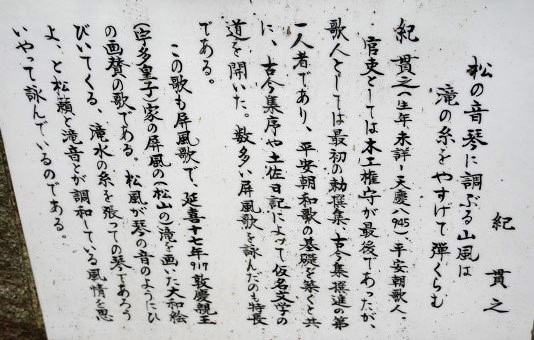 松の音琴に調ぶる山風は
滝の糸をやすげて弾くらむ
紀貫之
紀貫之(生年未詳-天慶八945)平安朝歌人
官吏としては木工権守が最後であったが、
歌人としては最初の勅撰集・古今集撰進の第
一人者であり、平安朝和歌の基礎を築くと共
に、古今集序や土佐日記によって仮名文学の
道を開いた。数多い屏風歌を詠んだのも特長
である。
この歌も屏風歌で、延喜十七年917敦慶親王
(宇多皇子)家の屏風の(松山の)滝を画いた大和絵
の画賛の歌である。松風が琴の音のようにひ
びいてくる、滝水の糸を張っての琴であろう
よ、と松瀬と滝音とが調和している風情を思
いやって詠んでいるのである。